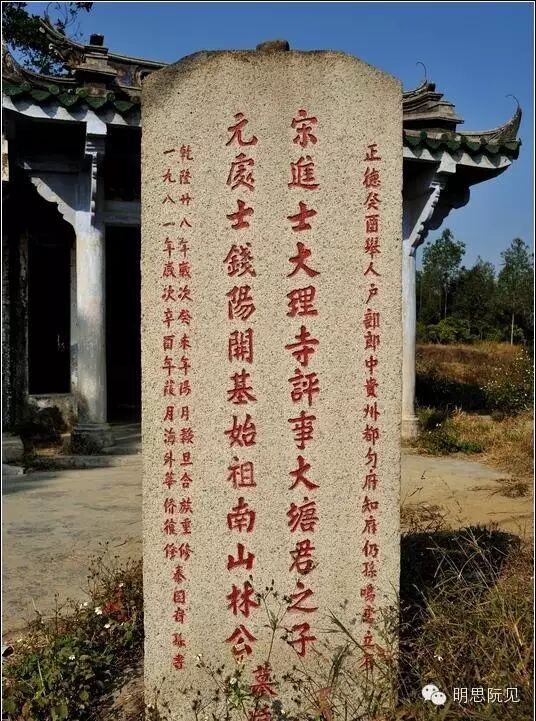 正德癸酉舉人戶部郎中貴州都勻府知府仍孫鳴
宋進士大理寺評事大塘君之子
元處士錢陽開基始祖南山林公墓
乾隆廿八年歲次癸未年陽月穀旦合族重修
一九八一年歲次辛酉年葭月海外華僑復修 泰國
明思阮见